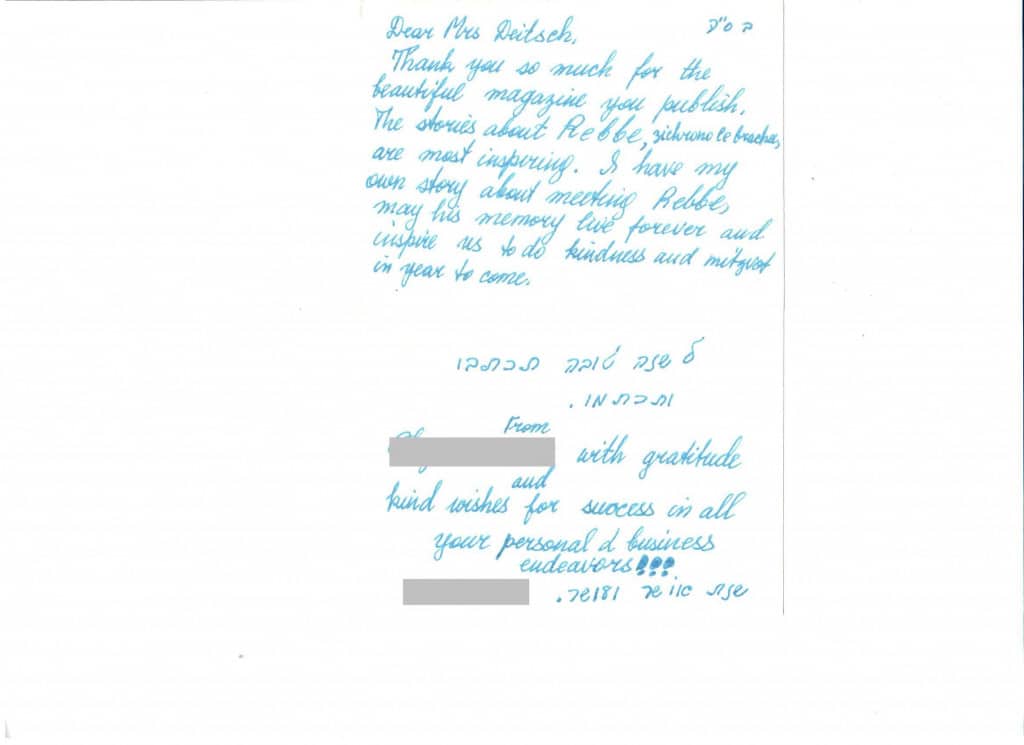 ב ס"ד
Dear Mrs Deitsch,
Thank you so much for the
beautiful magazine you publish.
The stories about Rebbe, zichrono le bracha,
are most inspiring. I have my
own story about meeting Rebbe,
may his memory live forever and
inspire us to do kindness and mitzvot
in year to come.
לשנה טובה תכתבו
ותכתמו.
From
with gratitude
and
kind wishes for success in all
your personal & business
endeavors!!!
שנת אושר ועושר.